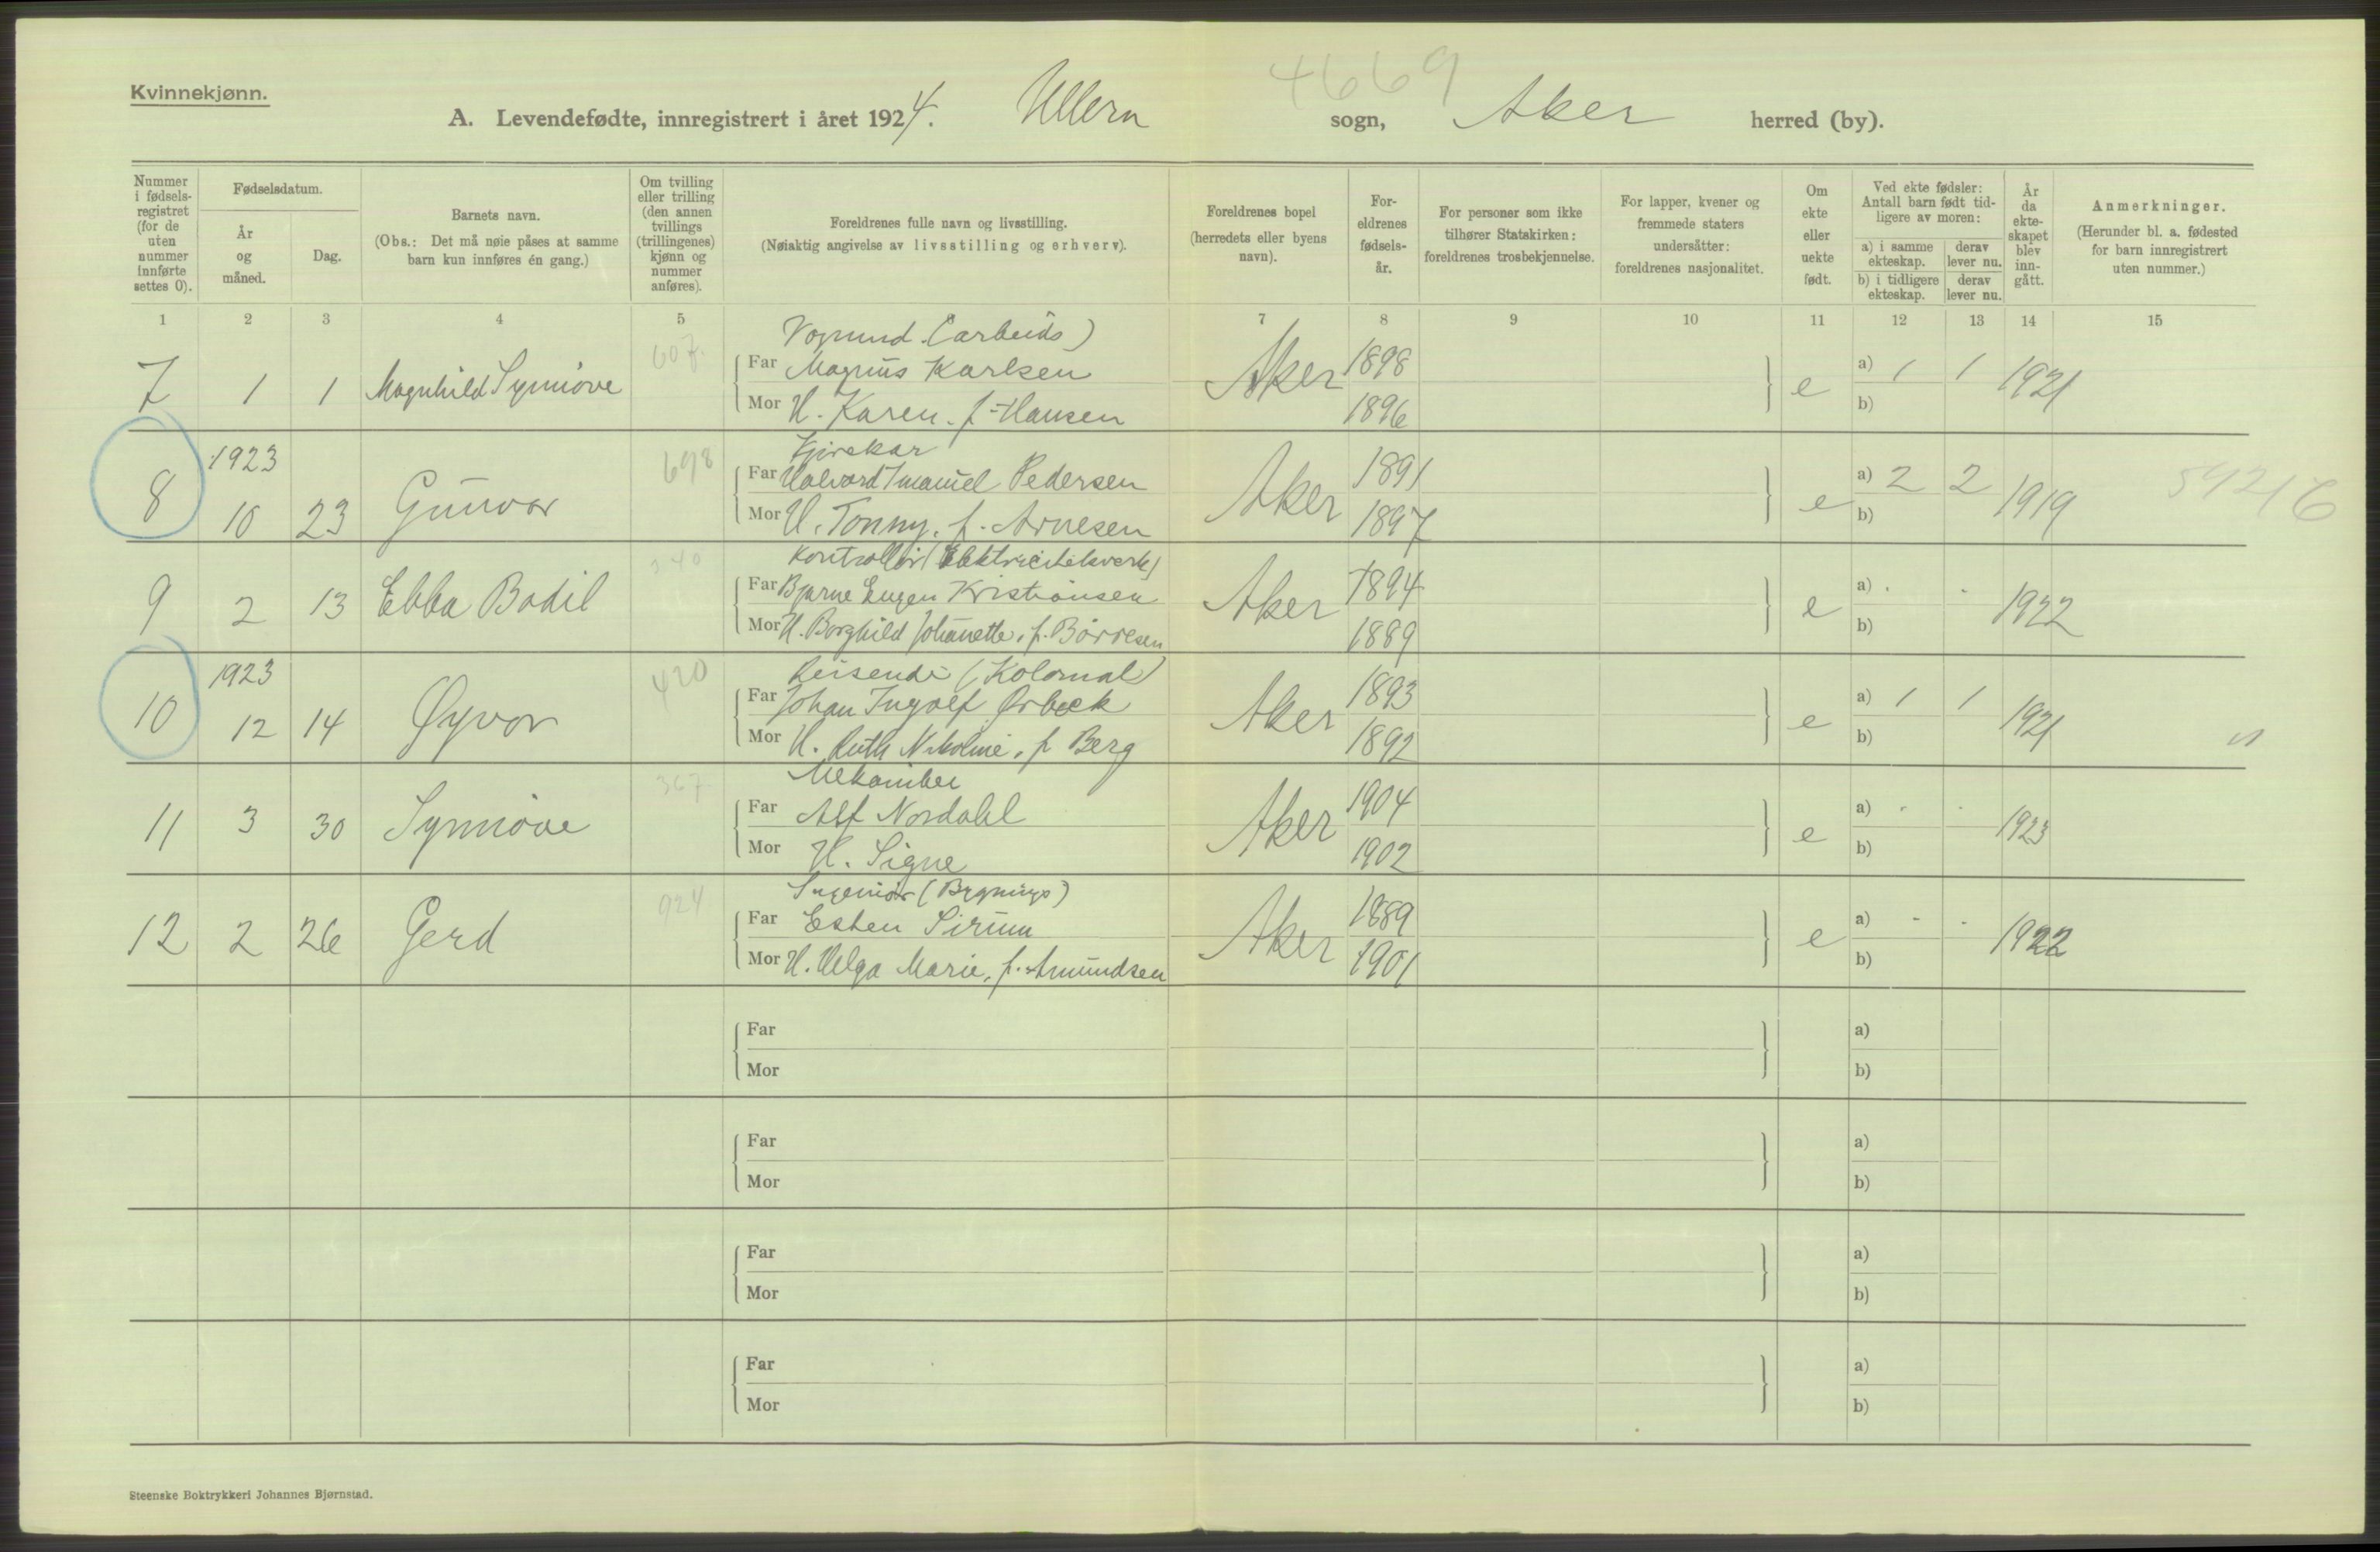 Kvinnekjønn.
4669
A. Levendefødte, innregistrert i året 1924. Ullern sogn, Aker herred (by).
Nummer i fødsels-registret (for de uten nummer innførte settes 0).
Fødselsdatum.
År og måned.
Dag.
Barnets navn.
(Obs.: Det må nøie påses at samme barn kun innføres én gang.)
Om tvilling eller trilling (den annen tvillings (trillingenes) kjønn og nummer anføres).
Foreldrenes fulle navn og livsstilling.
(Nøiaktig angivelse av livsstilling og erhverv).
Foreldrenes bopel (herredets eller byens navn).
For-eldrenes fødsels-år.
For personer som ikke tilhører Statskirken: foreldrenes trosbekjennelse.
For lapper, kvener og fremmede staters undersåtter: foreldrenes nasjonalitet.
Om ekte eller uekte født.
Ved ekte fødsler: Antall barn født tid-ligere av moren:
a) i samme ekteskap.
derav lever nu.
b) i tidligere ekteskap.
derav lever nu.
År da ekte-skapet blev inn-gått.
Anmerkninger.
(Herunder bl. a. fødested for barn innregistrert uten nummer.)
1 2 3 4 5 6 7 8 9 10 11 12 13 14 15
Vognmd. (arbeids)
7 1 1 Magnhild Synnøve 607. Far Magnus Karlsen Aker 1898 e a) 1 1 1921
Mor H. Karen. f. Hansen 1896 b)
Kjørekar
8 1923 10 23 Gunvor 698 Far Halvard Imanuel Pedersen Aker 1891 e a) 2 2 1919 59216
Mor H. Tonny, f. Arnesen 1897 b)
Kontrollør (Elektricitetsverk)
9 2 13 Ebba Bodil 340 Far Bjarne Eugen Kristiansen Aker 1894 e a) . . 1922
Mor H. Borghild Johanette, f. Børresen 1889 b)
Reisende (Kolonial)
10 1923 12 14 Øyvor 420 Far Johan Ingolf Ørbeck Aker 1893 e a) 1 1 1921
Mor H. Ruth Nikoline, f. Berg 1892 b)
Mekaniker
11 3 30 Synnøve 367. Far Alf Nordahl Aker 1904 e a) . . 1923
Mor H. Signe 1902 b)
Ingeniør (Bygnings)
12 2 26 Gerd 924 Far Esten Sirum Aker 1889 e a) - - 1922
Mor H. Helga Marie, f. Amundsen 1901 b)
Far a)
Mor b)
Far a)
Mor b)
Far a)
Mor b)
Far a)
Mor b)
Steenske Boktrykkeri Johannes Bjørnstad.